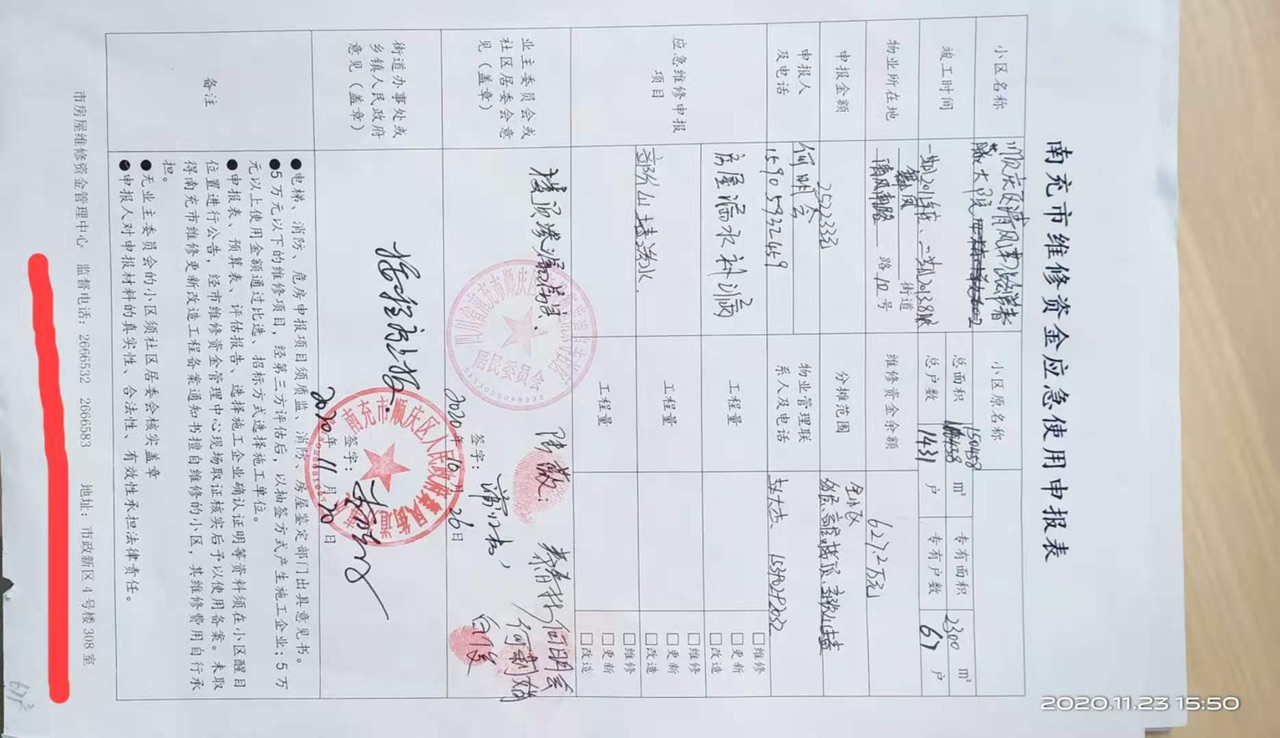 南充市维修资金应急使用申报表
小区名称
小区原名称
竣工时间
总面积
m²
专有面积
2300
m²
总户数
1431
户
专有户数
67
户
物业所在地
街道
路12号
维修资金余额
627.2万元
申报金额
25233元
分摊范围
全小区
申报人
及电话
何明会
15905932459
物业管理联
系人及电话
15390292032
应急维修申报
项目
房屋漏水补漏
工程量
□维修
□更新
□改造
工程量
□维修
□更新
□改造
工程量
□维修
□更新
□改造
业主委员会或
社区居委会意
见（盖章）
居民委员会
签字：
2020年10月26日
街道办事处或
乡镇人民政府
意见（盖章）
签字：
2020年11月20日
备注
●电梯、消防、危房申报项目须质监、消防、房屋鉴定部门出具意见书。
●5万元以下的维修项目，经第三方评估后，以抽签方式产生施工企业；5万
元以上使用金额通过比选、招标方式选择施工单位。
●申报表、预算表、评估报告、选择施工企业确认证明等资料须在小区醒目
位置进行公告，经市维修资金管理中心现场取证核实后予以使用备案。未取
得南充市维修更新改造工程备案通知书擅自维修的小区，其维修费用自行承
担。
●无业主委员会的小区须社区居委会核实盖章
●申报人对申报材料的真实性、合法性、有效性承担法律责任。
市房屋维修资金管理中心 监督电话：2666532 2666583 地址：市政新区4号楼308室
2020.11.23 15:50